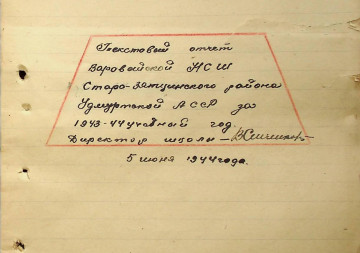 Текстовый отчет
Варавайской НСШ
Старо-Зятцинского района
Удмуртской АССР за
1943-44 учебный год.
Директор школы –
5 июня 1944 года.